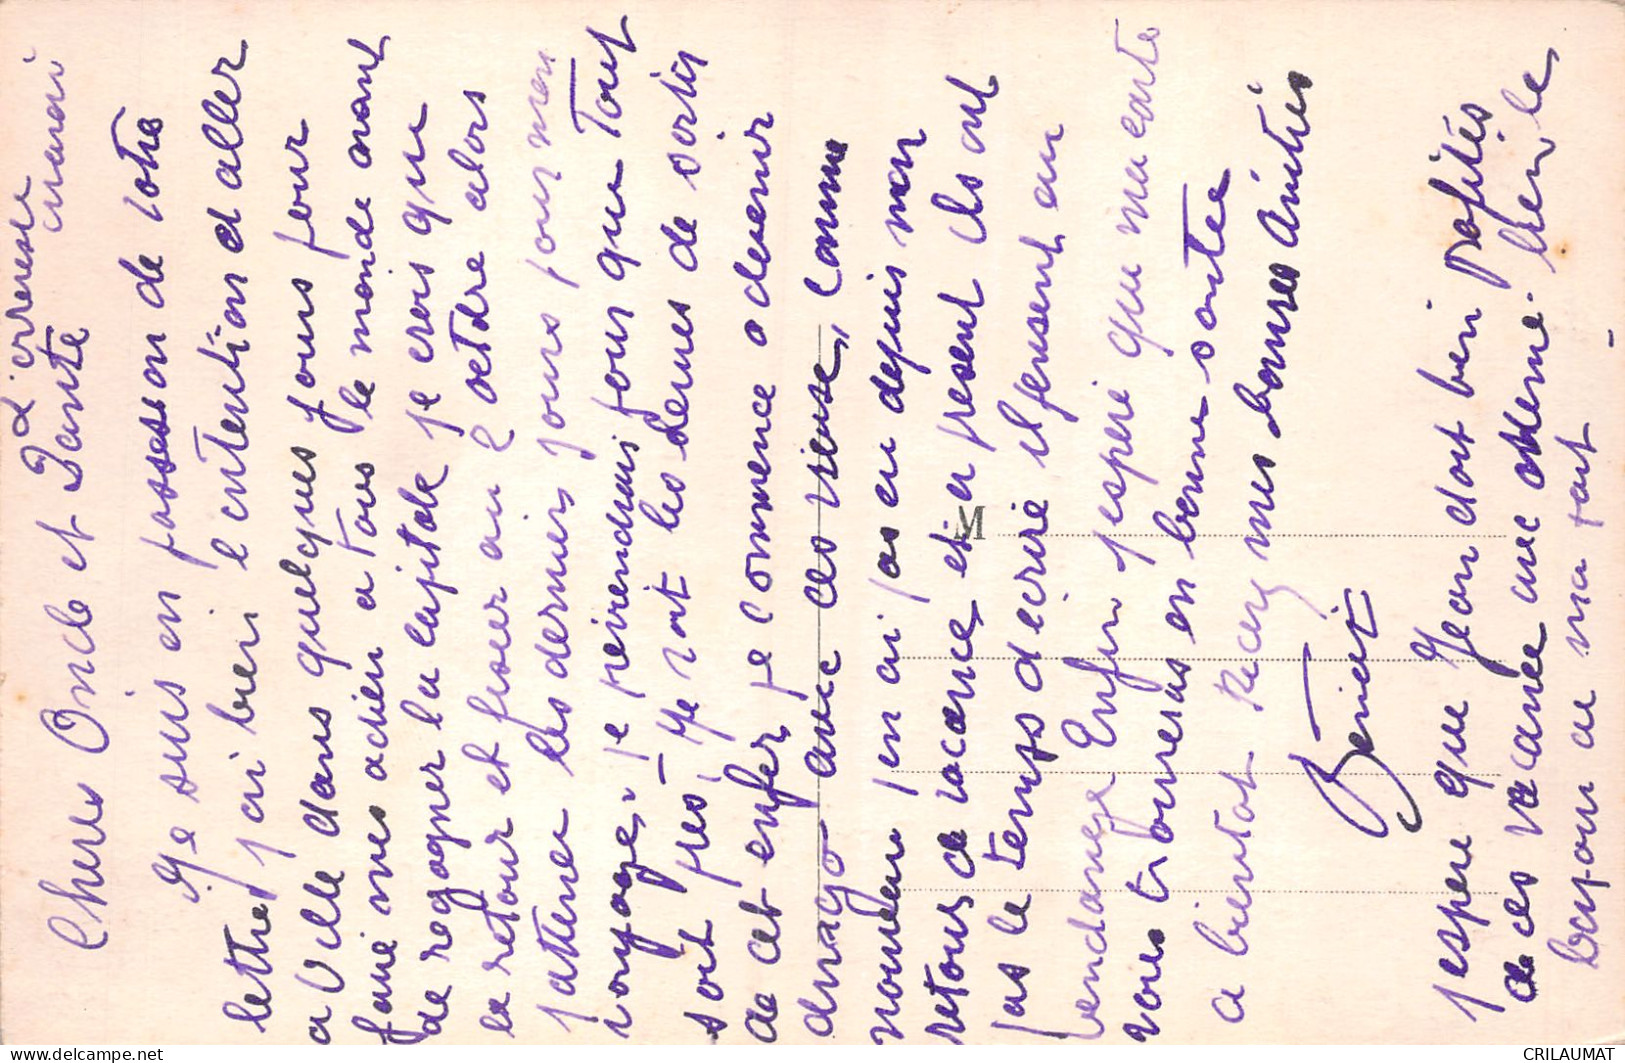 mardi
Chers Oncle et Tante
Je suis en possession de votre
lettre j'ai bien l'intention d'aller
a Ville dans quelques jours pour
faire mes adieu a tous le monde avant
de regagner la capitale je crois que
le retour et fixer au 2 octbre alors
j'attend les derniers jours pour mon
voyage, je previendrais pour que Tout
soit pres, Je vois les dernes de sortis
de cet enfer, je commence a devenir
avec ces vieuse, comme
nouveau j'en ai pas eu depuis mon
retour de vacance, et a present ils ont
pas le temps d'ecrire il pensent en
vendange Enfin j'espere que ma carte
vous trouveras en bonne santee
a bientot Recevez mes bonnes Amitiés
Benoit
j'espere que Jean doit bien profités
de ces vacance avec Meme. bien le
bonjour au ma tant
M
www.delcampe.net
CRILAUMAT